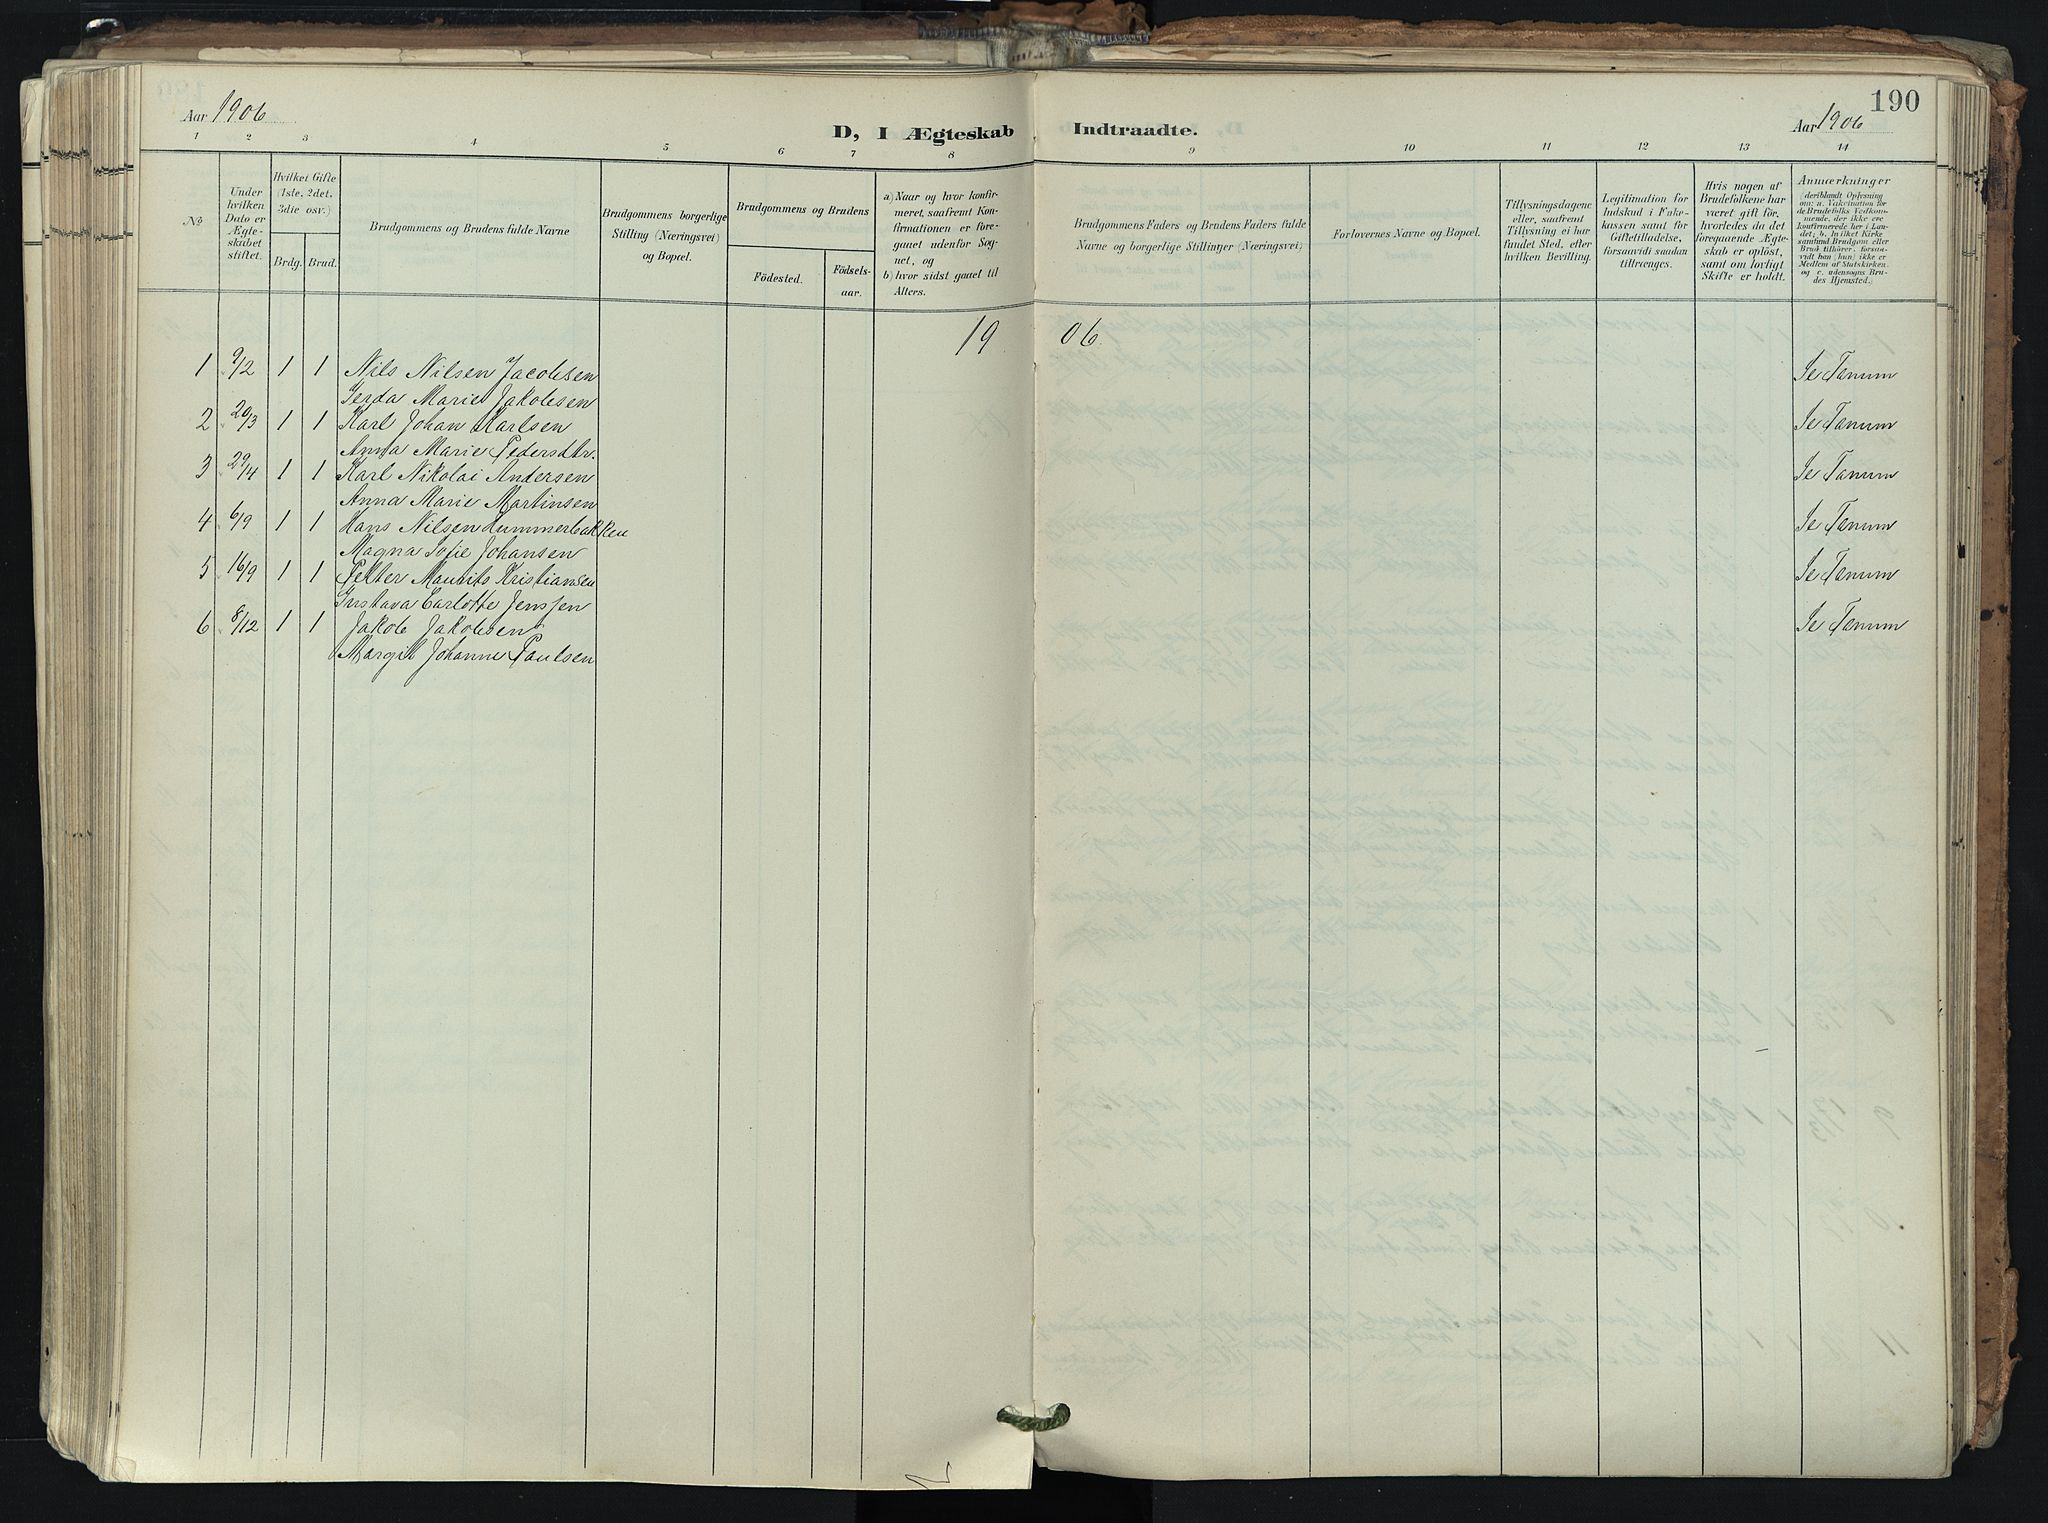 190
Aar 1906
D, I Ægteskab Indtraadte.
Aar 1906
1 2 3 4 5 6 7 8 9 10 11 12 13 14
No
Under hvilken Dato er Ægte-skabet stiftet.
Hvilket Gifte (1ste, 2det, 3die osv.)
Brdg. Brud.
Brudgommens og Brudens fulde Navne
Brudgommens borgerlige Stilling (Næringsvei) og Bopæl.
Brudgommens og Brudens
Födested.
Födsels-aar.
a) Naar og hvor konfir-meret, saafremt Kon-firmationen er fore-gaaet udenfor Sog-net, og
b) hvor sidst gaaet til Alters.
Brudgommens Faders og Brudens Faders fulde Navne og borgerlige Stillinger (Næringsvei)
Forlovernes Navne og Bopæl.
Tillysningsdagene eller, saafremt Tillysning ei har fundet Sted, efter hvilken Bevilling.
Legitimation for Indskud i Enke-kassen samt for Giftetilladelse, forsaavidt saadan tiltrænges.
Hvis nogen af Brudefolkene har været gift för, hvorledes da det foregaaende Ægte-skab er oplöst, samt om lovligt Skifte er holdt.
Anmærkninger
(deriblandt Oplysning om: a. Vakcination for de Brudefolks Vedkom-mende, der ikke ere konfirmerede her i Lan-det; b. hvilket Kirke samfund Brudgom eller Brud tilhörer, forsaa-vidt han (hun) ikke er Medlem af Statskirken, og c. udensogns Bru-des Hjemsted.)
1906
1 9/2 1 1 Nils Nilsen Jacobsen Se Tanum
Gerda Marie Jakobsen
2 20/3 1 1 Karl Johan Karlsen Se Tanum
Anna Marie Pedersdtr.
3 29/4 1 1 Karl Nikolai Andersen Se Tanum
Anna Marie Martinsen
4 6/9 1 1 Hans Nilsen Hummerbakken Se Tanum
Magna Sofie Johansen
5 16/9 1 1 Petter Maurits Kristiansen Se Tanum
Gustava Carlotte Jenssen
6 8/12 1 1 Jakob Jakobsen Se Tanum
Margit Johanne Paulsen